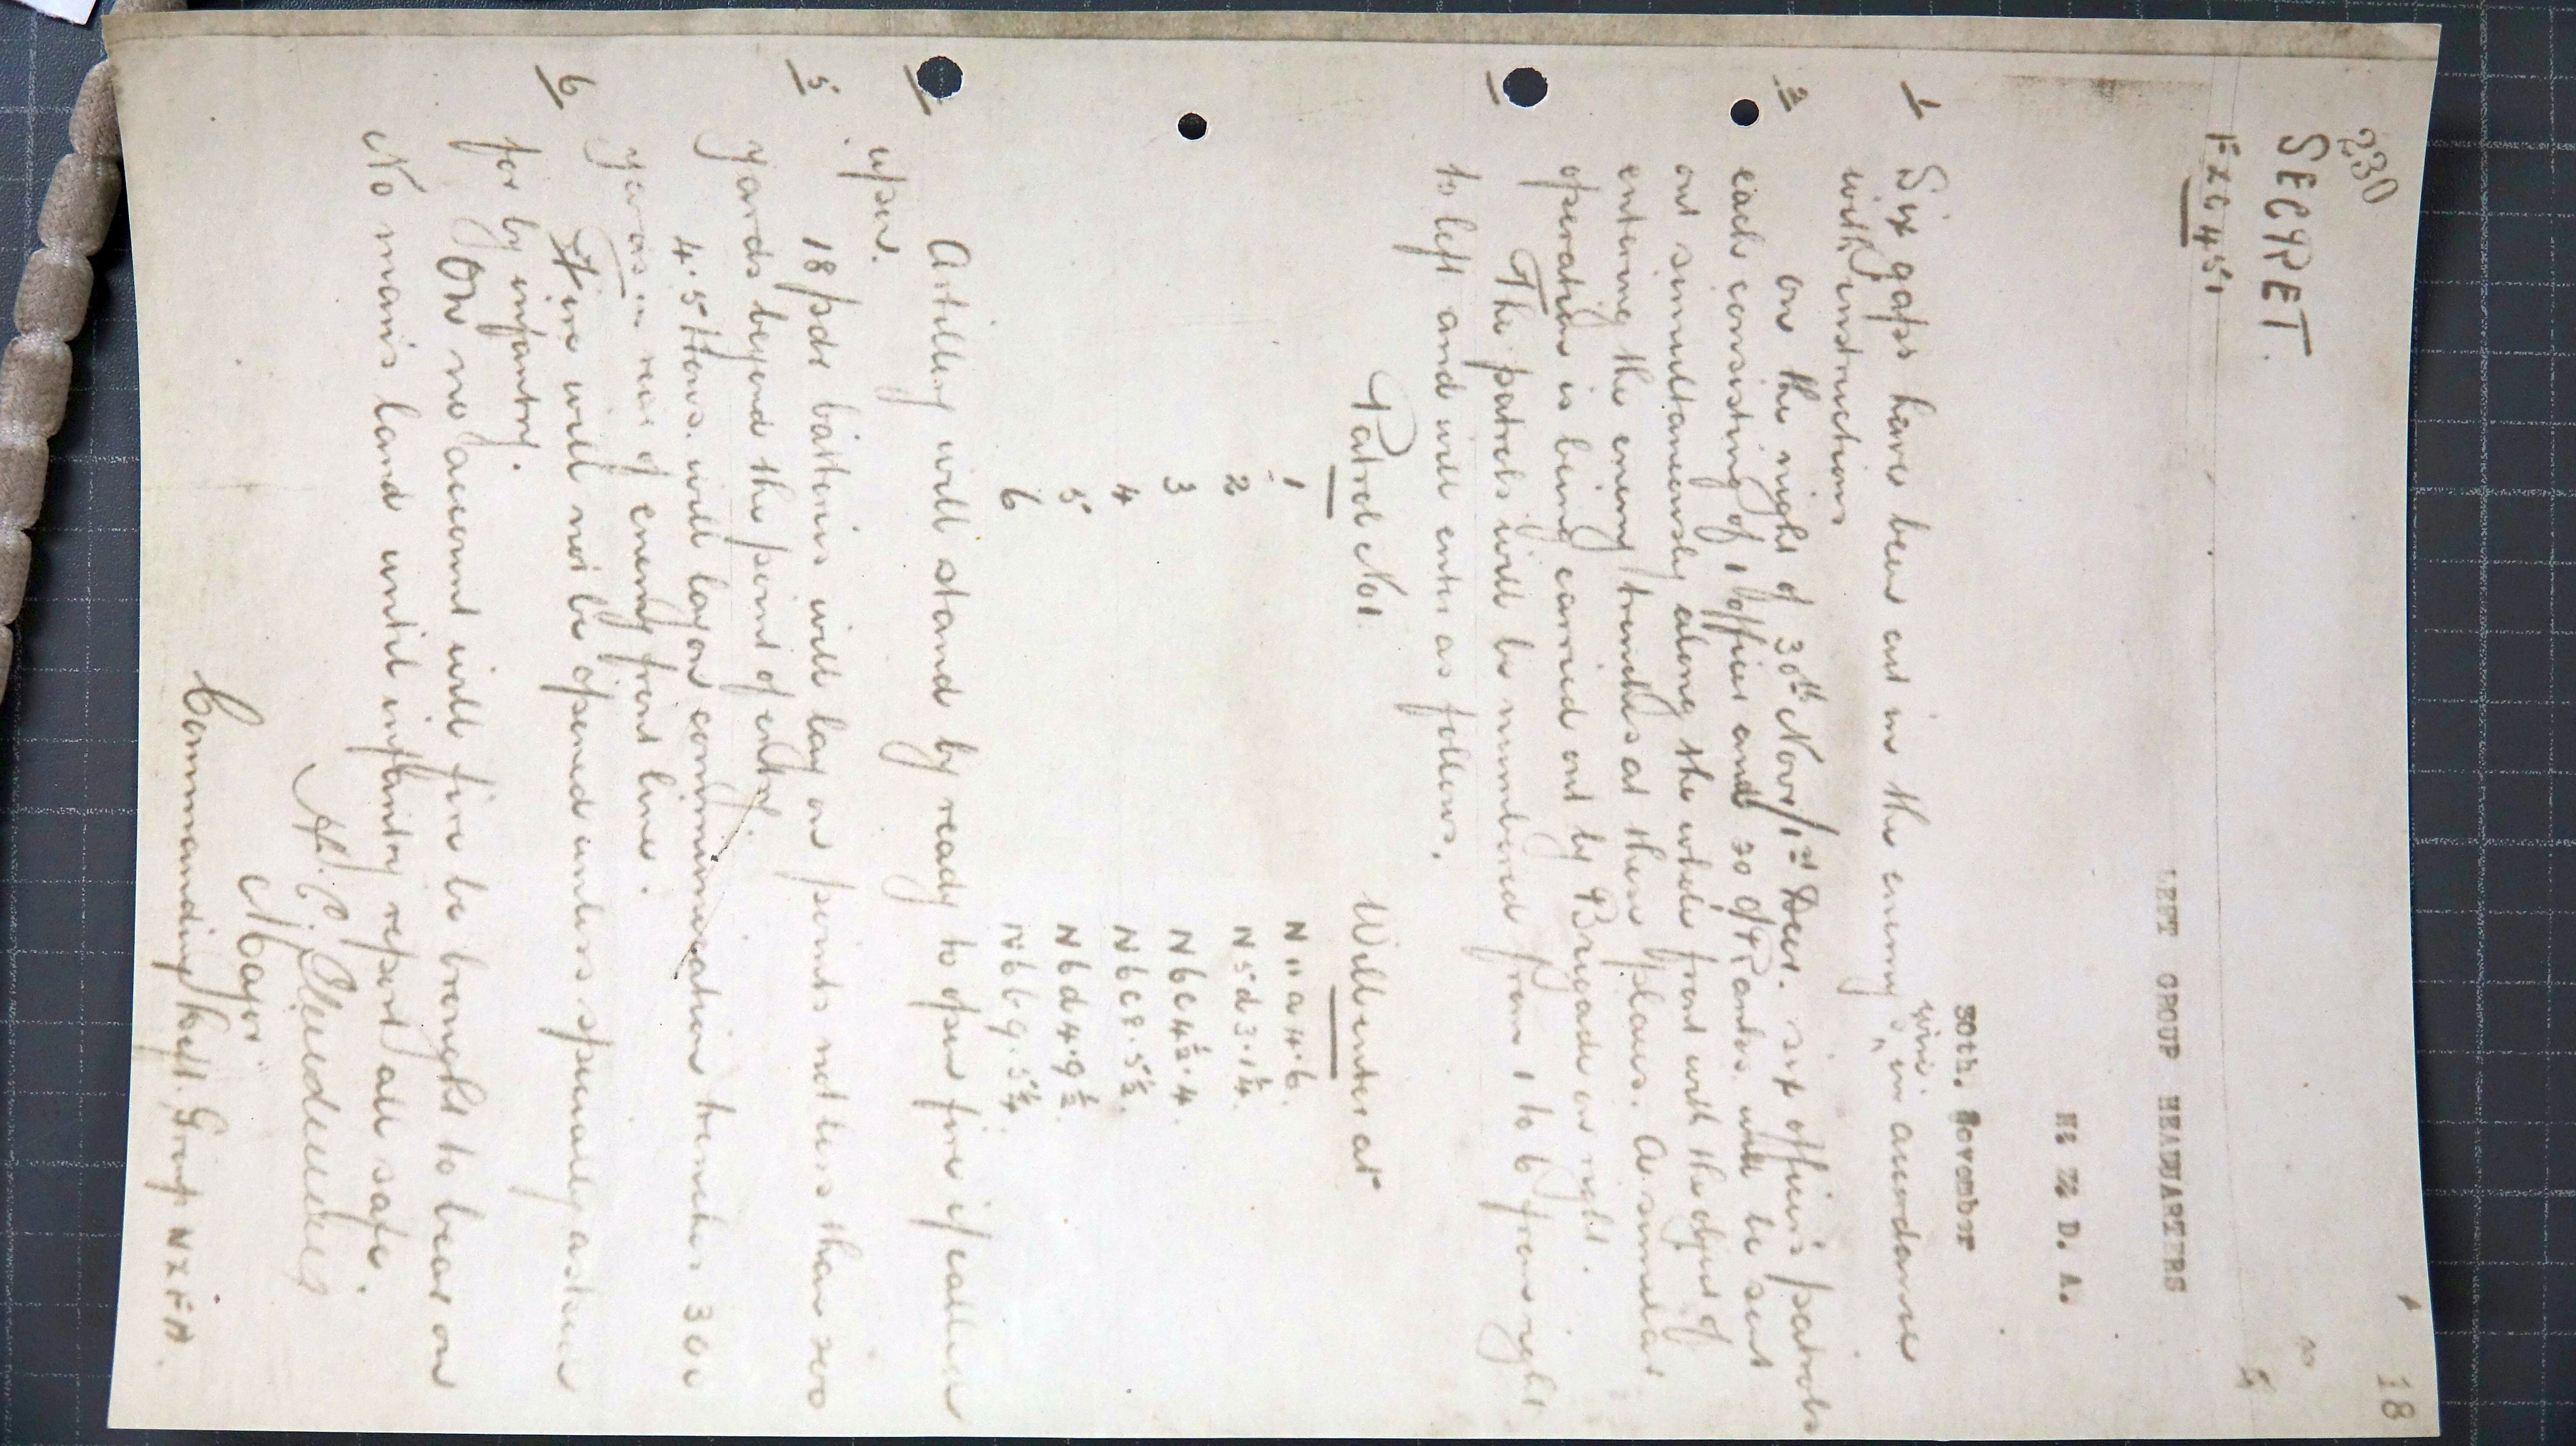 230
18
SECRET.
FZG 451
LEFT GROUP HEADQUARTERS
N Z D. A.
30th. November
1 Six gaps have been cut in the enemy's wire in accordance
with instructions
2 On the night of 30th Novr/1st Decr. six officers patrols
each consisting of 1 officer and 20 O/Ranks will be sent
out simultaneously along the whole front with the object of
entering the enemy trenches at these places. A similar
operation is being carried out by Brigade on right.
The patrols will be numbered from 1 to 6 from right
to left and will enter as follows.
Patrol No. Will enter at
1 N 11 a 4.6.
2 N 5 d 3.1¼.
3 N 6 c 4½.4.
4 N 6 c 8.5½.
5 N 6 d 4.9½
6 N 6 b 9.5¼.
Artillery will stand by ready to open fire if called
upon.
5 18 pdr batteries will lay on points not less than 200
yards beyond the point of entry.
4.5 Hows. will lay on communication trenches 300
yards in rear of enemy front line.
6 Fire will not be opened unless specially asked
for by infantry.
On no account will fire be brought to bear on
No mans land until infantry report all safe.
Major
Commanding Left Group NZFA.